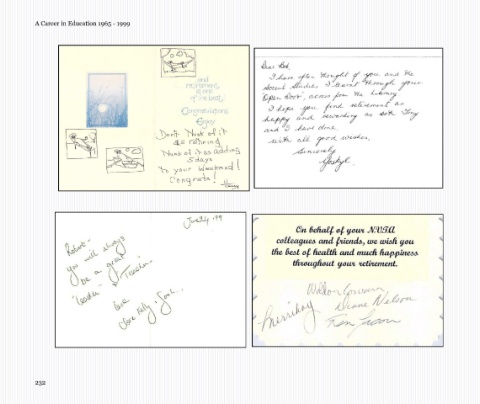 A Career in Education 1965 - 1999
and
retirement
is one
of the best!
Congratulations
Enjoy
Don't think of it
as retiring
Think of it as adding
5 days
to your weekend!
Congrats!
Dear Bob,
I have often thought of you and the
Social Studies I learned through your
"Open Door", across from the library.
I hope you find retirement as
happy and rewarding as both Tony
and I have done.
with all good wishes,
Sincerely
June 24, 99
Robert -
you will always
be a great
"leader" & Teacher.
love
On behalf of your N.V.T.A
colleagues and friends, we wish you
the best of health and much happiness
throughout your retirement.
Diane Nelson
232